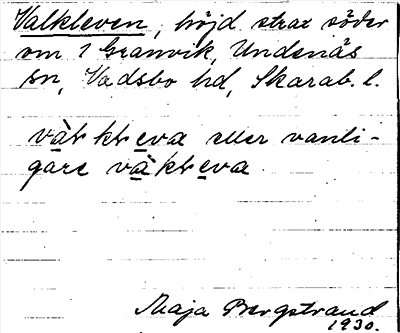 Valkleven, höjd strax söder
om 1 Granvik, Undenäs
sn, Vadsbo hd, Skarab. l.
vàr kreva eller vanli-
gare vàkreva
Maja Bergstrand
1930.